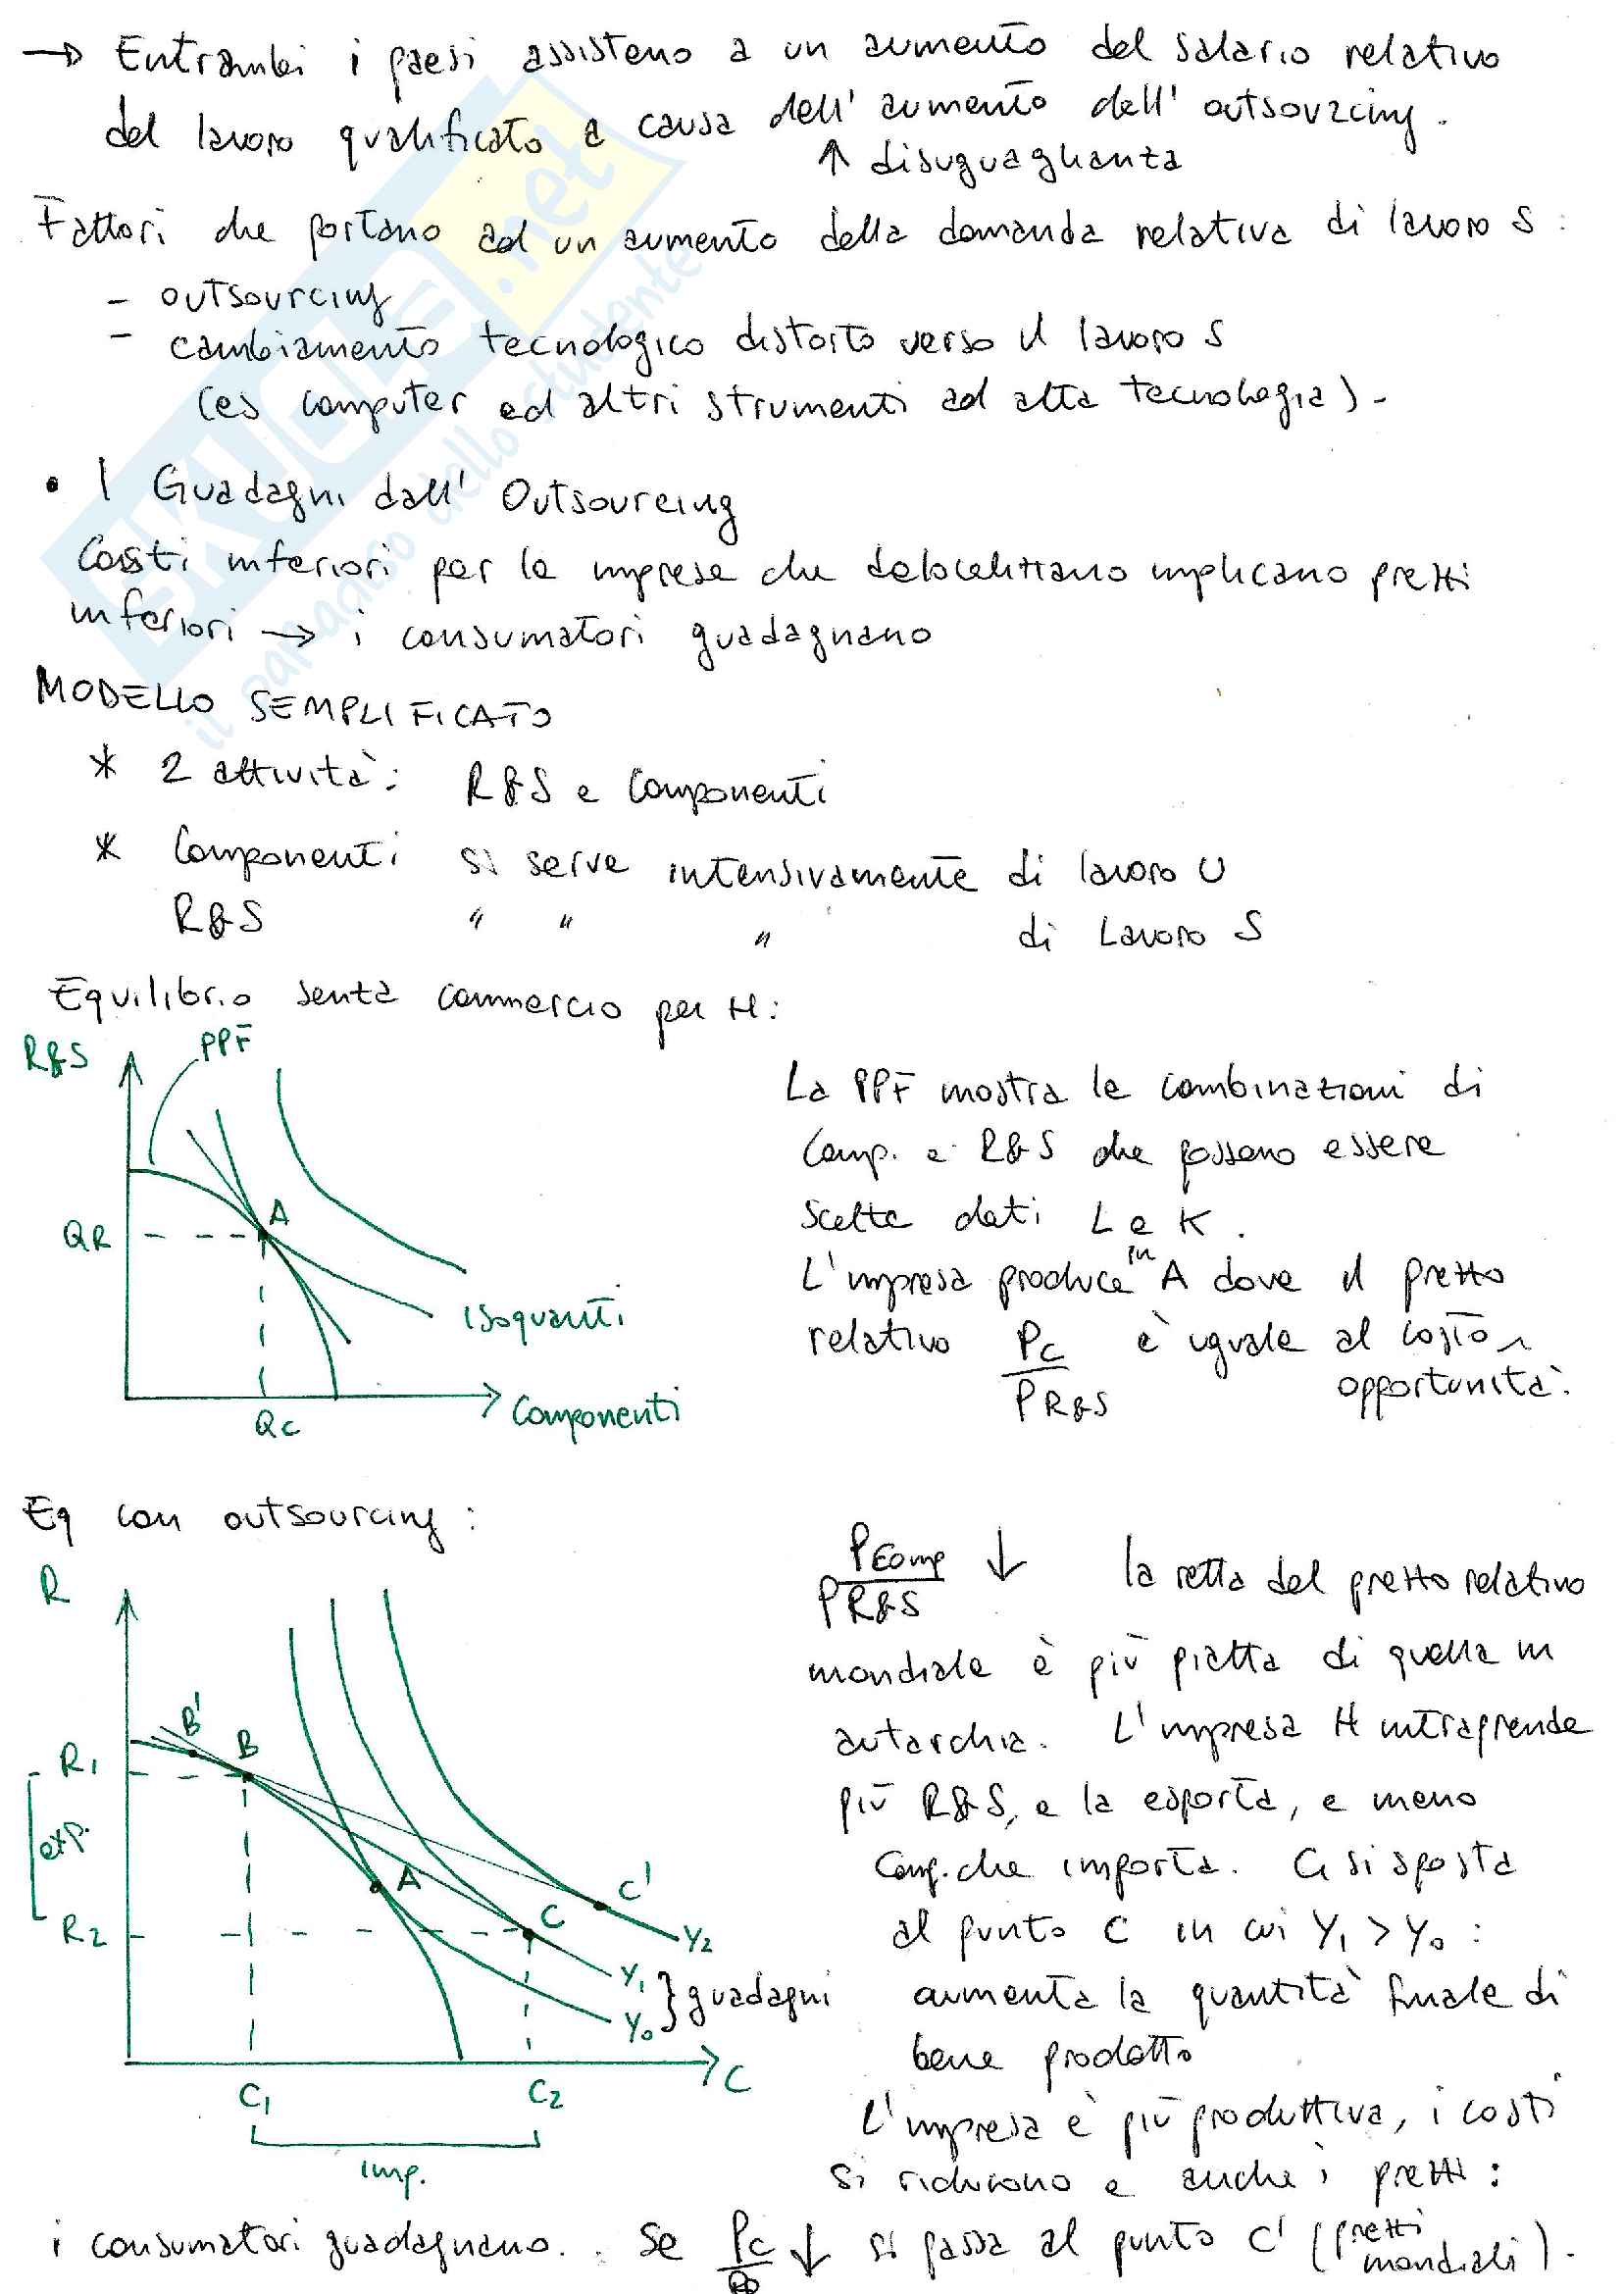 → Entrambi i paesi assistono a un aumento del salario relativo
del lavoro qualificato a causa dell' aumento dell' outsourcing.
↑ disuguaglianza
Fattori che portano ad un aumento della domanda relativa di lavoro S :
- outsourcing
- cambiamento tecnologico distorto verso il lavoro S
(es computer ed altri strumenti ad alta tecnologia).
• I Guadagni dall' Outsourcing
Costi inferiori per le imprese che delocalizzano implicano prezzi
inferiori → i consumatori guadagnano
MODELLO SEMPLIFICATO
* 2 attività: R&S e Componenti
* Componenti si serve intensivamente di lavoro U
R&S " " " di Lavoro S
Equilibrio senza commercio per H:
R&S
PPF
A
QR
Isoquanti
Componenti
QC
La PPF mostra le combinazioni di
Comp. e R&S che possono essere
scelte dati L e K.
L'impresa produce in A dove il prezzo
relativo PC / PR&S è uguale al costo
opportunità.
Eq con outsourcing :
R
B'
B
R1
exp.
A
C'
C
R2
Y2
Y1
Y0
} guadagni
C
C1
C2
imp.
PComp / PR&S ↓ la retta del prezzo relativo
mondiale è più piatta di quella in
autarchia. L'impresa H intraprende
più R&S, e la esporta, e meno
Comp. che importa. Ci si sposta
al punto C in cui Y1 > Y0 :
aumenta la quantità finale di
bene prodotto
L'impresa è più produttiva, i costi
si riducono e anche i prezzi :
i consumatori guadagnano. Se PC / PR ↓ si passa al punto C' (prezzi mondiali).
SKUOLA.net
il paradiso dello studente